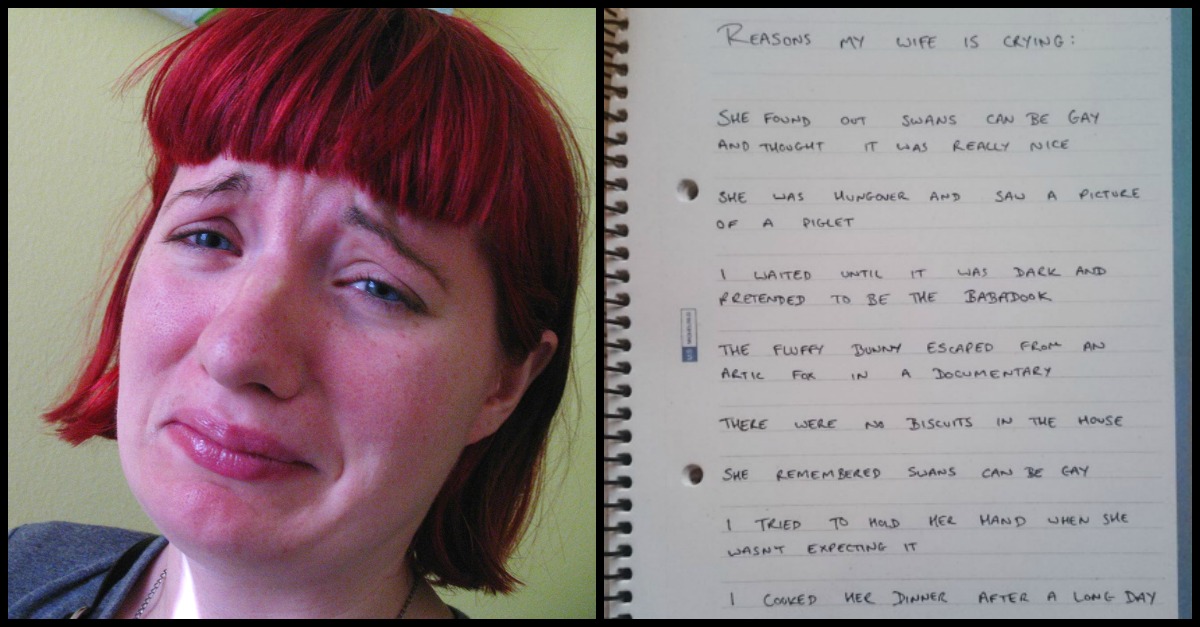 REASONS MY WIFE IS CRYING:
SHE FOUND OUT SWANS CAN BE GAY
AND THOUGHT IT WAS REALLY NICE
SHE WAS HUNGOVER AND SAW A PICTURE
OF A PIGLET
I WAITED UNTIL IT WAS DARK AND
PRETENDED TO BE THE BABADOOK
THE FLUFFY BUNNY ESCAPED FROM AN
ARTIC FOX IN A DOCUMENTARY
THERE WERE NO BISCUITS IN THE HOUSE
SHE REMEMBERED SWANS CAN BE GAY
I TRIED TO HOLD HER HAND WHEN SHE
WASNT EXPECTING IT
I COOKED HER DINNER AFTER A LONG DAY